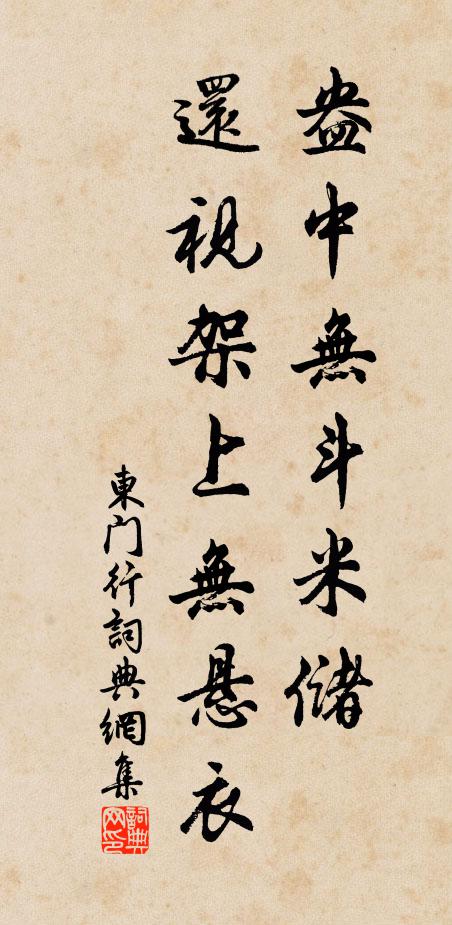 盎中無斗米儲
還視架上無悬衣
東门行詞典網集
詞典网印